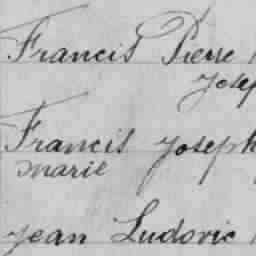 Francis Pierre
Josep
Francis Joseph
Marie
Jean Ludovic